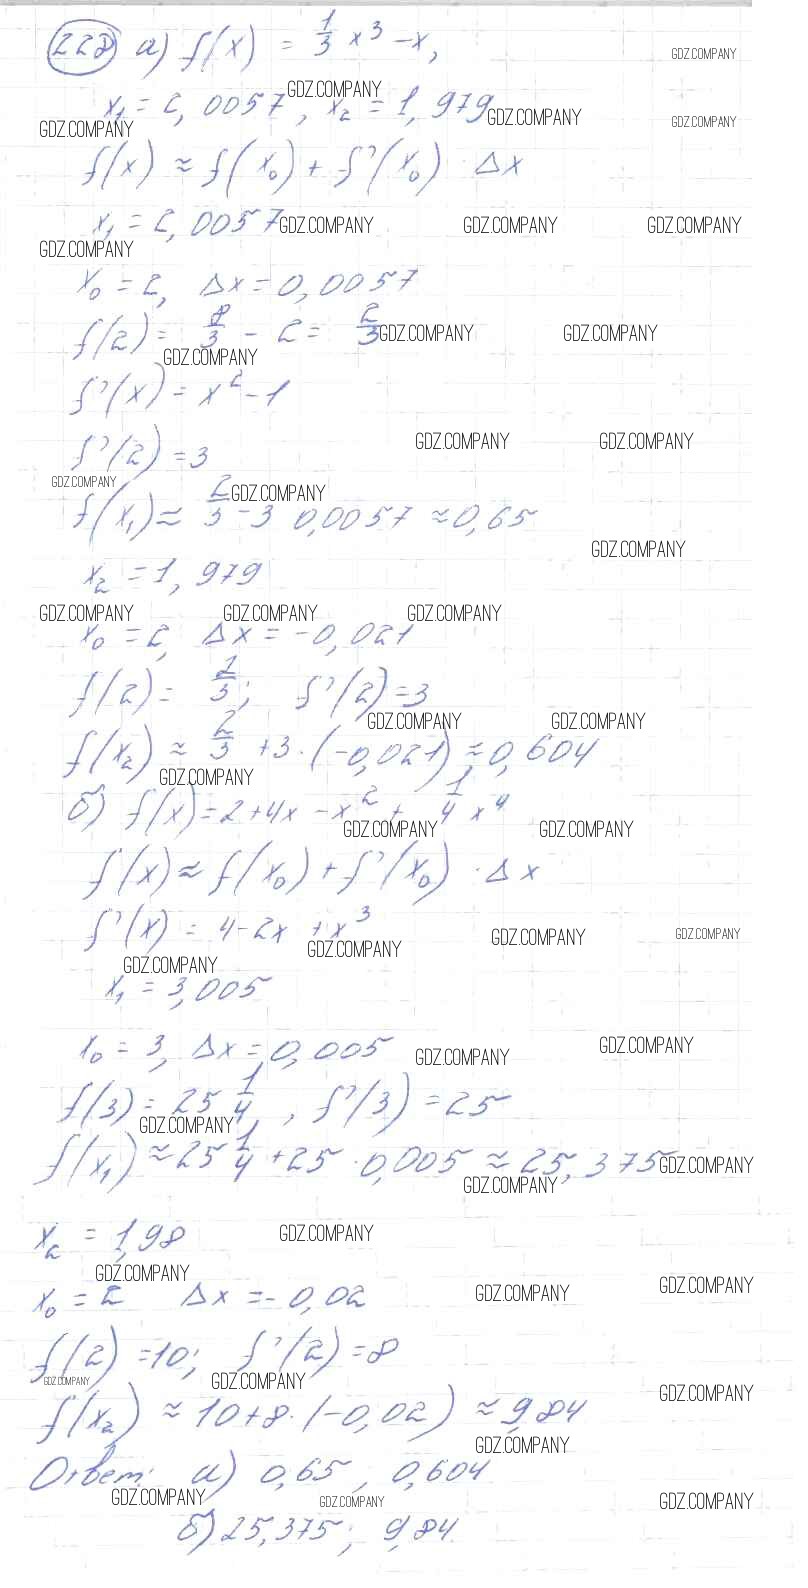 228 а) f(x) = 1/3 x³ - x,
GDZ.COMPANY
x₁ = 2,0057, x₂ = 1,979
GDZ.COMPANY GDZ.COMPANY GDZ.COMPANY GDZ.COMPANY
f(x) ≈ f(x₀) + f'(x₀) · Δx
x₁ = 2,0057
GDZ.COMPANY GDZ.COMPANY GDZ.COMPANY
GDZ.COMPANY
x₀ = 2, Δx = 0,0057
f(2) = 8/3 - 2 = 2/3
GDZ.COMPANY GDZ.COMPANY
GDZ.COMPANY
f'(x) = x² - 1
f'(2) = 3
GDZ.COMPANY GDZ.COMPANY
GDZ.COMPANY GDZ.COMPANY
f(x₁) ≈ 2/3 - 3 0,0057 ≈ 0,65
GDZ.COMPANY
x₂ = 1,979
GDZ.COMPANY GDZ.COMPANY GDZ.COMPANY
x₀ = 2, Δx = -0,021
f(2) = 2/3; f'(2) = 3
GDZ.COMPANY GDZ.COMPANY
f(x₂) ≈ 2/3 + 3 · (-0,021) ≈ 0,604
GDZ.COMPANY
б) f(x) = 2 + 4x - x² + 1/4 x⁴
GDZ.COMPANY GDZ.COMPANY
f(x) ≈ f(x₀) + f'(x₀) · Δx
f'(x) = 4 - 2x + x³
GDZ.COMPANY GDZ.COMPANY GDZ.COMPANY
GDZ.COMPANY
x₁ = 3,005
x₀ = 3, Δx = 0,005
GDZ.COMPANY GDZ.COMPANY
f(3) = 25 1/4, f'(3) = 25
GDZ.COMPANY
f(x₁) ≈ 25 1/4 + 25 · 0,005 ≈ 25,375
GDZ.COMPANY
GDZ.COMPANY
x₂ = 1,98
GDZ.COMPANY
GDZ.COMPANY GDZ.COMPANY GDZ.COMPANY
x₀ = 2 Δx = -0,02
f(2) = 10; f'(2) = 8
GDZ.COMPANY GDZ.COMPANY GDZ.COMPANY
f(x₂) ≈ 10 + 8 · (-0,02) ≈ 9,84
GDZ.COMPANY
Ответ: а) 0,65; 0,604
GDZ.COMPANY GDZ.COMPANY GDZ.COMPANY
б) 25,375; 9,84.